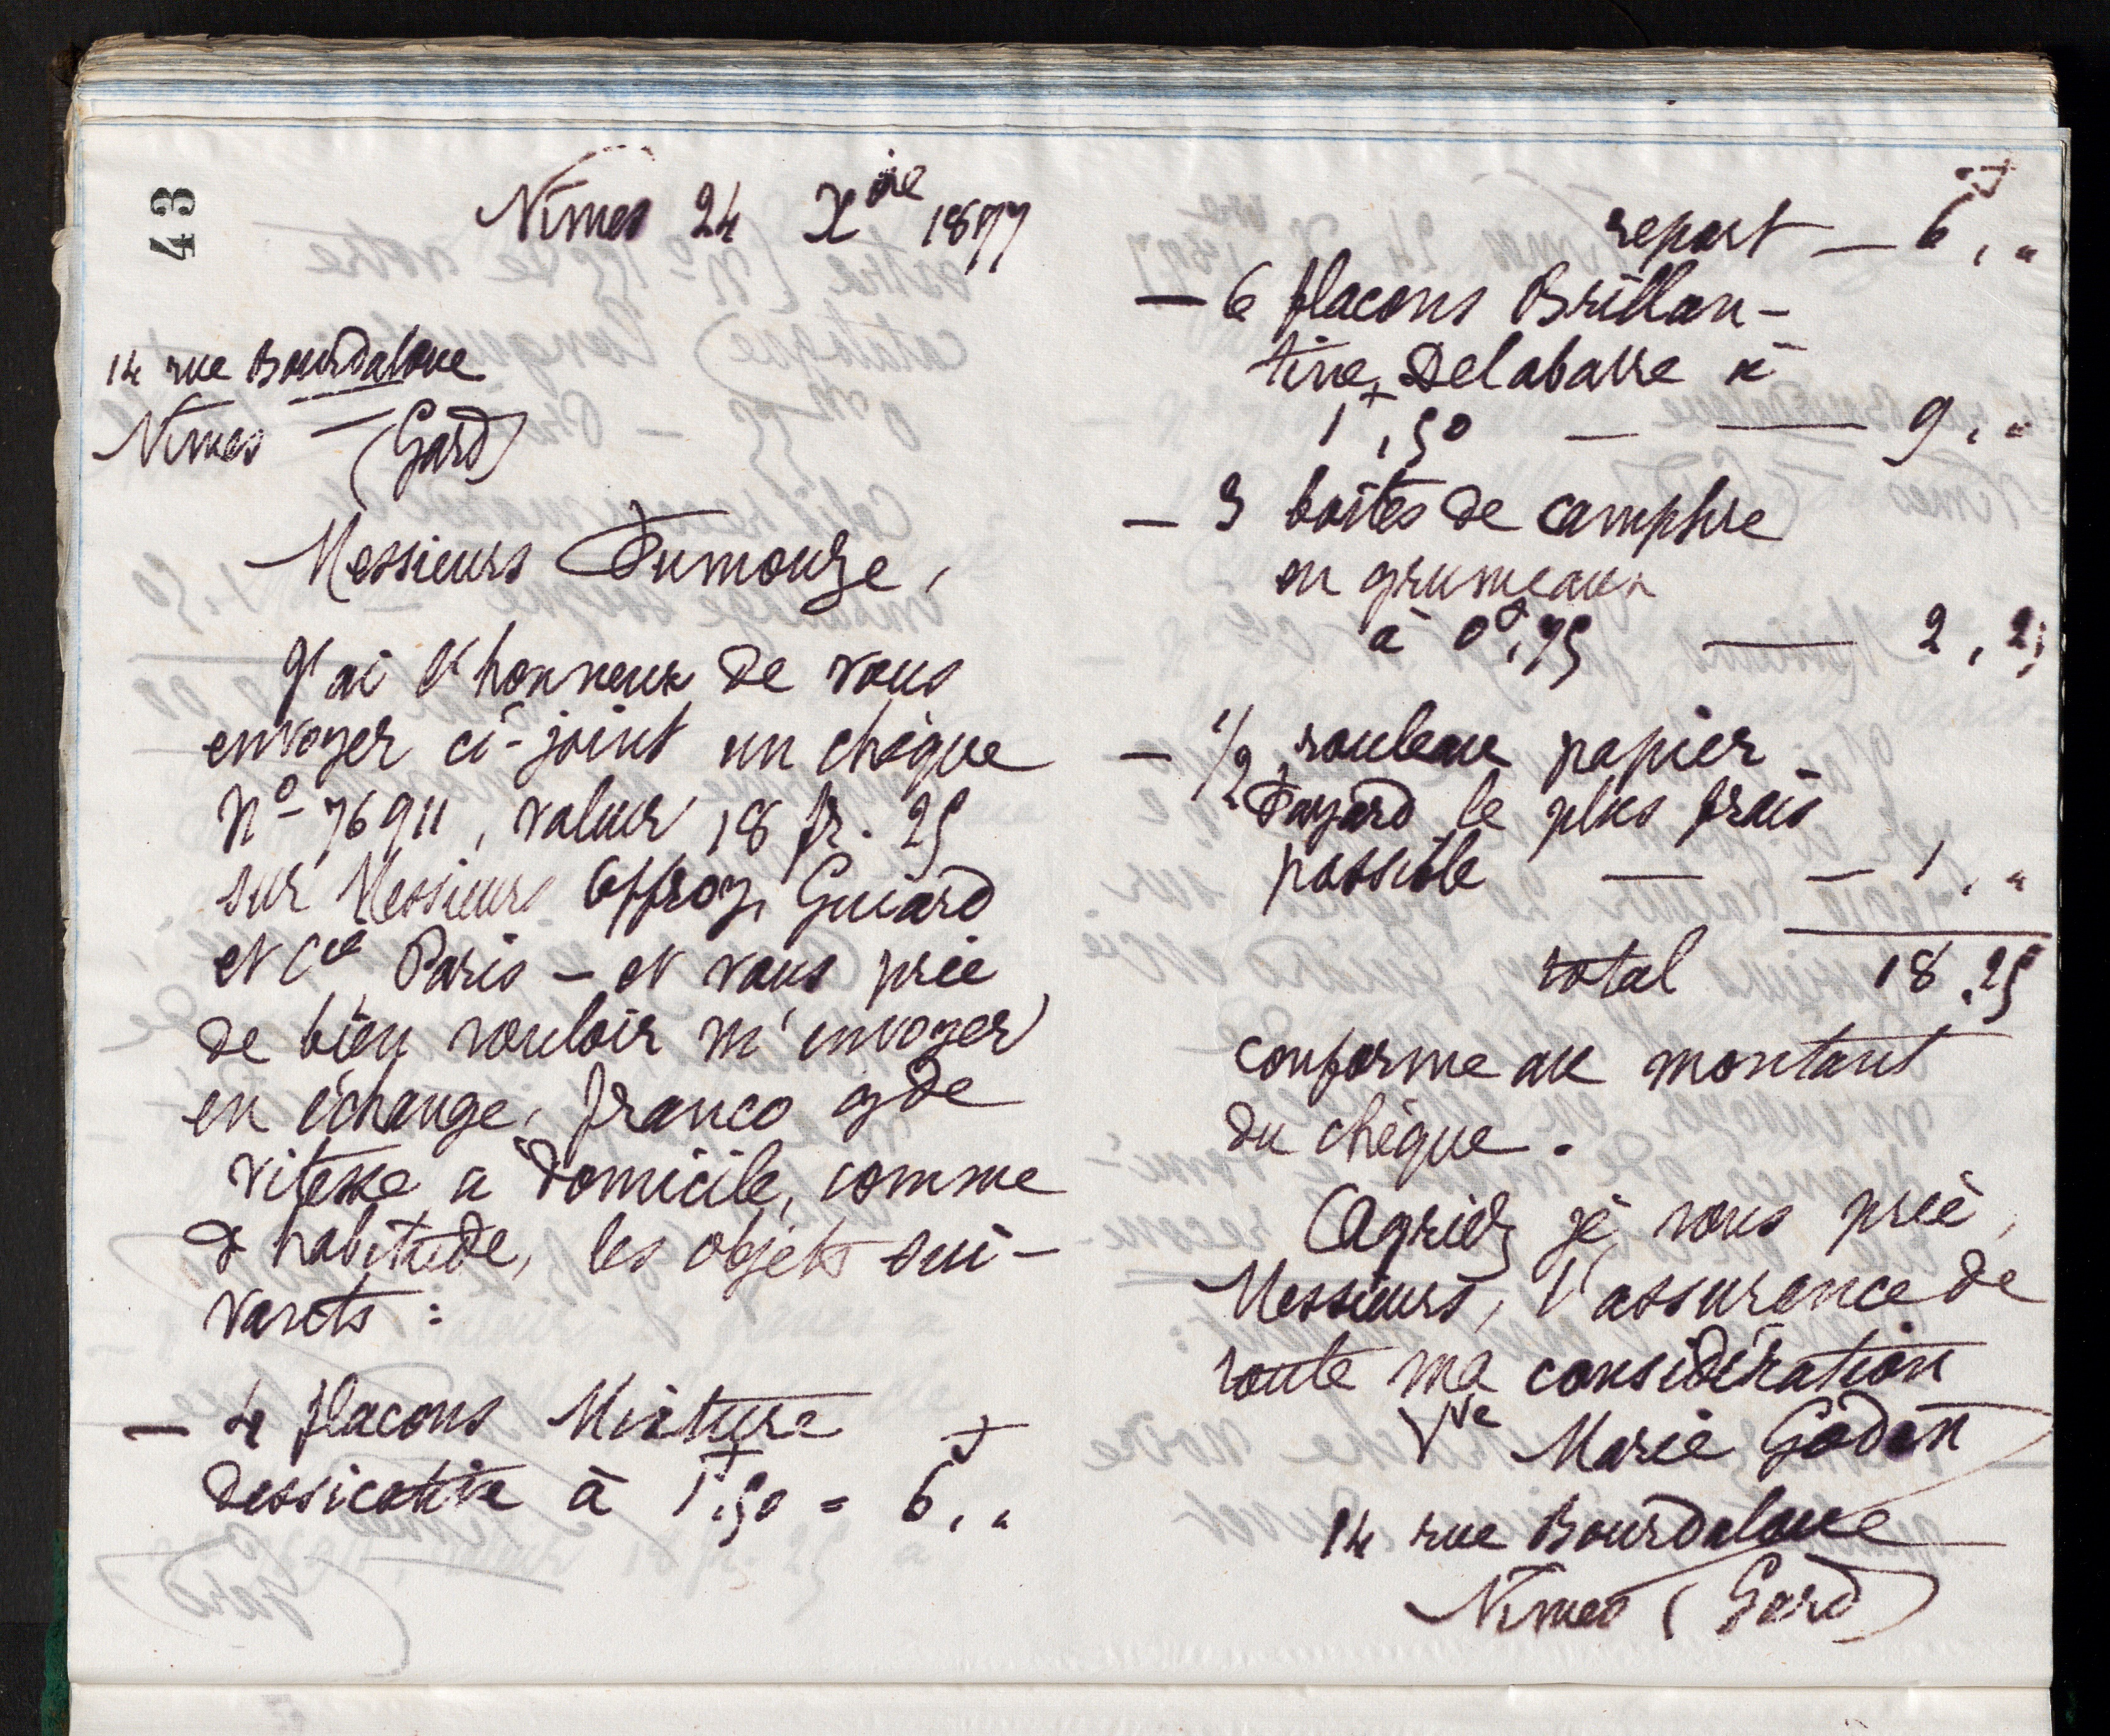 43
Nîmes 24 Xbre 1897
14 rue Bourdaloue
Nîmes — (Gard)
Messieurs Fumouze,
J'ai l'honneur de vous
envoyer ci-joint un chèque
No 76911, valeur 18 fr. 25
sur Messieurs Offroy, Guiard
et Cie Paris — et vous prie
de bien vouloir m'envoyer
en échange, franco gde
vitesse à domicile, comme
d'habitude, les objets sui-
vants :
— 4 flacons Mixture
dessicative à 1f,50 = 6f,"
report — 6f,"
— 6 flacons Brillan-
tine, Delabarre à
1f,50 — — 9,"
— 3 boîtes de camphre
en grumeaux
à 0f,75 — 2,25
— 1/2 rouleau papier
Fayard le plus frais
possible — — 1,"
total 18,25
conforme au montant
du chèque.
Agréez je vous prie,
Messieurs, l'assurance de
toute ma considération
Vve Marie Godin
14 rue Bourdaloue
Nîmes (Gard)